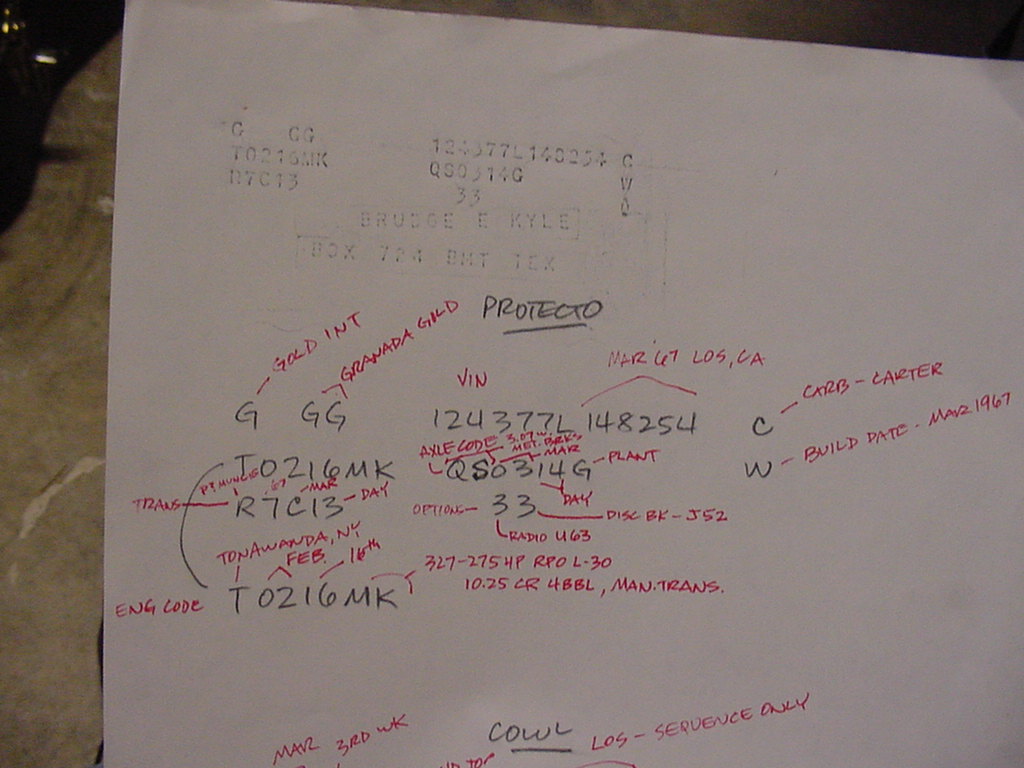 G GG
T0216MK 124377L148254 C
R7C13 QS0314G W
33
BRUDGE E KYLE
BOX 724 BMT TEX
PROTECTO
GOLD INT
GRANADA GOLD
VIN
MAR '67 LOS, CA
CARB - CARTER
G GG 124377L148254 C
AXLE CODE 3.07 W. MET. BRK'S MAR
T0216MK QS0314G - PLANT W - BUILD DATE - MAR 1967
P3 MUNCIE 67 MAR
TRANS R7C13 - DAY OPTIONS - 33 DAY
DISC BK - J52
RADIO U63
TONAWANDA, NY
FEB. 16th
327-275HP RPO L-30
10.25 CR 4BBL, MAN. TRANS.
ENG CODE T0216MK
COWL
MAR 3RD WK
LOS - SEQUENCE ONLY